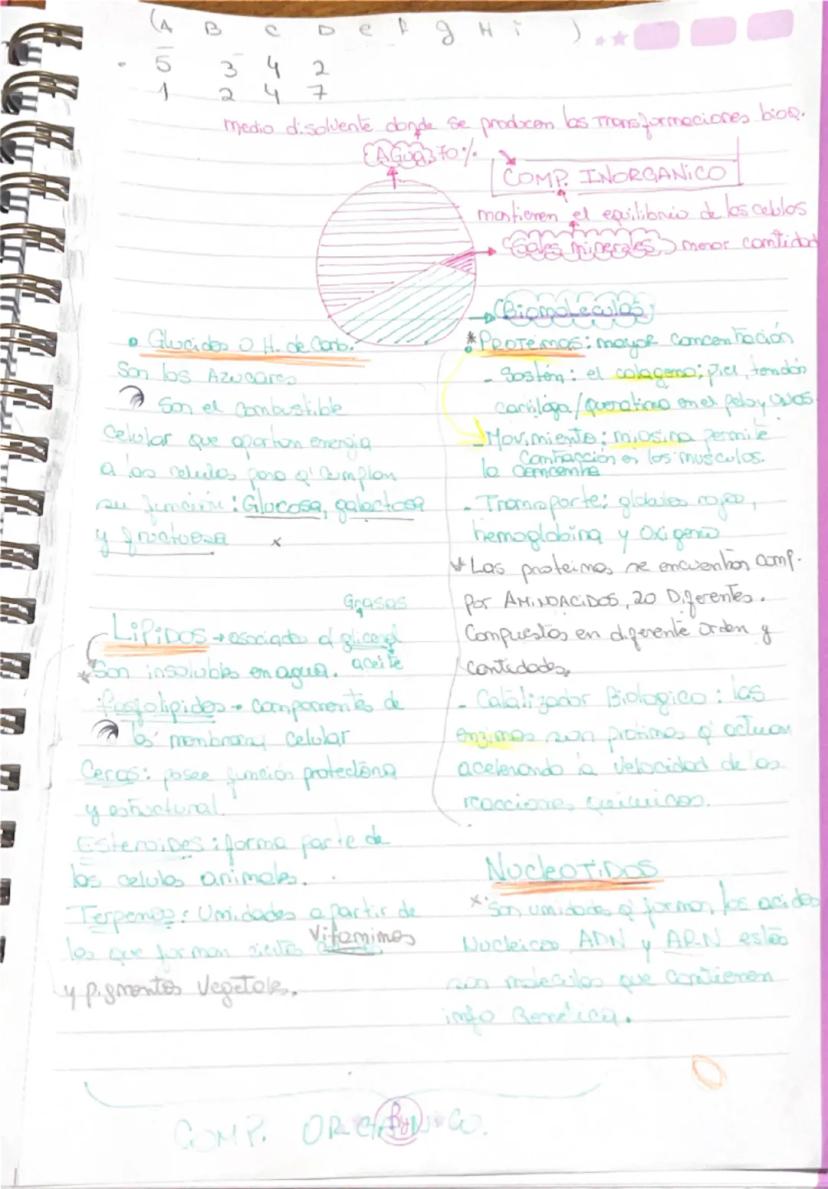 (A B C D e f g H i )
5 3 4 2
1 2 4 7
medio disolvente donde se producen las Transformaciones bioq.
AGUA 70%
COMP. INORGANICO
mantienen el equilibrio de las celulas
Sales minerales menor cantidad
Biomoléculas
• Glucidos O H. de Carb.
Son los Azucares
Son el combustible
celular que aportan energia
a las celulas para q' cumplan
su función: Glucosa, galactosa
y fructuosa x
Grasas
LIPIDOS → asociados al glicerol
aceite
* Son insolubles en agua.
Fosfolipidos → componentes de
la membrana celular
Ceras: posee función protectora
y estructural.
Esteroides: forma parte de
las celulas animales.
Terpenos: Unidades a partir de
las que forman ciertas Vitaminas
y pigmentos vegetales.
* Proteinas: mayor concentración
- Sostén: el colageno: piel, tendón
cartilago/queratina en el pelo y uñas
- Movimiento: miosina permite
la contracción en los musculos.
- Transporte: globulos rojos,
hemoglobina y Oxigeno
* Las proteinas se encuentran comp.
por AMINOACIDOS, 20 Diferentes.
Compuestos en diferente orden y
cantidades.
- Catalizador Biologico: las
enzimas son protinas q' actuan
acelerando la velocidad de las
reacciones quimicas.
NUCLEOTIDOS
x: Son unidades q' forman los acidos
Nucleicos ADN y ARN estas
son moleculas que contienen
info Genética.
COMP. ORGANICO.